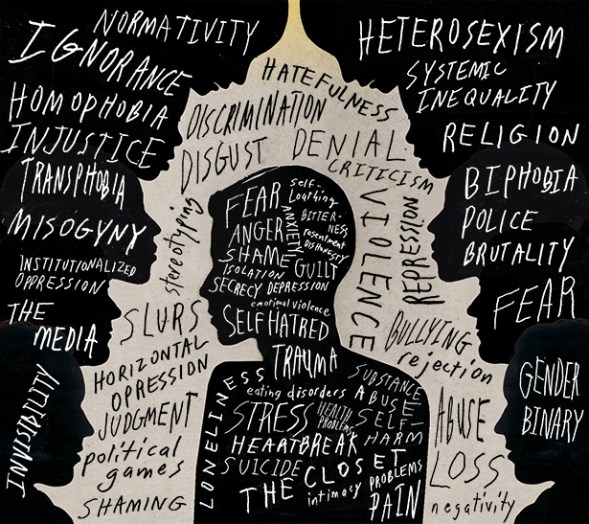 NORMATIVITY
IGNORANCE
HOMOPHOBIA
INJUSTICE
TRANSPHOBIA
MISOGYNY
INSTITUTIONALIZED
OPPRESSION
THE
MEDIA
INVISIBILITY
HETEROSEXISM
SYSTEMIC
INEQUALITY
RELIGION
BIPHOBIA
POLICE
BRUTALITY
FEAR
GENDER
BINARY
HATEFULNESS
DISCRIMINATION
DISGUST
DENIAL
CRITICISM
stereotyping
VIOLENCE
REPRESSION
SLURS
HORIZONTAL
OPRESSION
JUDGMENT
political
games
SHAMING
BULLYING
rejection
ABUSE
LOSS
negativity
FEAR
self-
Loathing
ANXIETY
BITTER-
NESS
ANGER
resentment
DISHONESTY
SHAME
GUILT
ISOLATION
SECRECY DEPRESSION
emotional violence
SELF HATRED
TRAUMA
LONELINESS
eating disorders
SUBSTANCE
ABUSE
STRESS
HEALTH
PROBLEMS
SELF-
HARM
HEARTBREAK
SUICIDE
THE CLOSET
intimacy PROBLEMS
PAIN